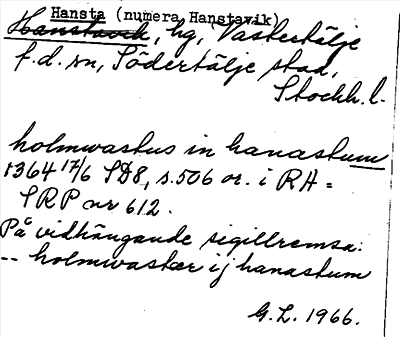 Hansta (numera Hanstavik)
Hanstavik, hg, Västertälje
f.d. sn, Södertälje stad,
Stockh. l.
holmwastus in hanastum
1364 17/6 SD8, s.506 or. i RA =
SRP nr 612.
På vidhängande sigillremsa:
-- holmwastær ij hanastum
G.L. 1966.